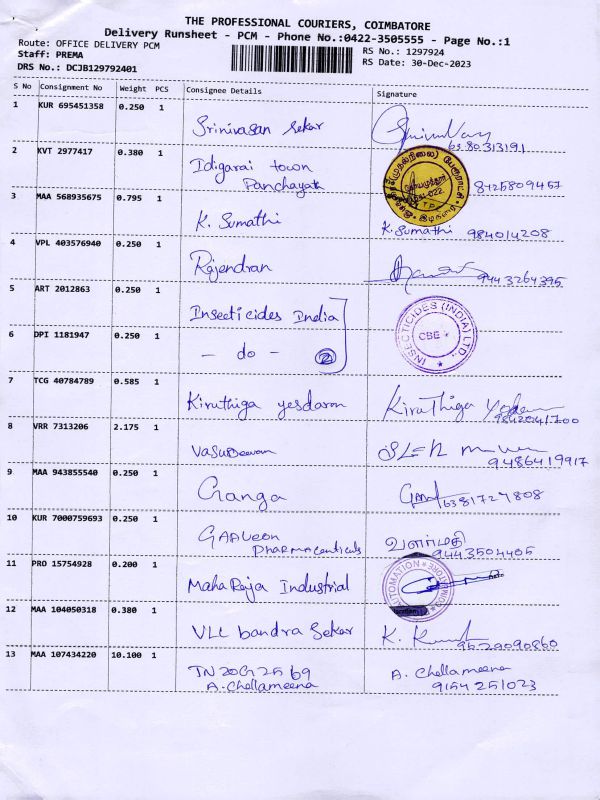 THE PROFESSIONAL COURIERS, COIMBATORE
Delivery Runsheet - PCM - Phone No.:0422-3505555 - Page No.:1
Route: OFFICE DELIVERY PCM
Staff: PREMA
DRS No.: DCJB129792401
RS No.: 1297924
RS Date: 30-Dec-2023
S No Consignment No Weight PCS Consignee Details Signature
1 KUR 695451358 0.250 1
Srinivasan Sekar
6380313191
2 KVT 2977417 0.380 1
Idigarai town
Panchayat
8425809457
3 MAA 568935675 0.795 1
K. Sumathi K. Sumathi 984014208
4 VPL 403576940 0.250 1
Rajendran
9443264395
5 ART 2012863 0.250 1
Insecticides India
INSECTICIDES (INDIA) LTD.
CBE
6 DPI 1181947 0.250 1
- do - 2
7 TCG 40784789 0.585 1
Kiruthiga yesdaron Kiruthiga
8 VRR 7313206 2.175 1
Vasudevan
9486419917
9 MAA 943855540 0.250 1
Ganga
6381727808
10 KUR 7000759693 0.250 1
Pharmaceuticals
வளர்மதி
9443504405
11 PRO 15754928 0.200 1
MahaRaja Industrial
AUTOMATION
12 MAA 104050318 0.380 1
VLL bandra Sekar
9529090860
13 MAA 107434220 10.100 1
TN20G2569
A. Chellameena
A. Chellameena
9154251023